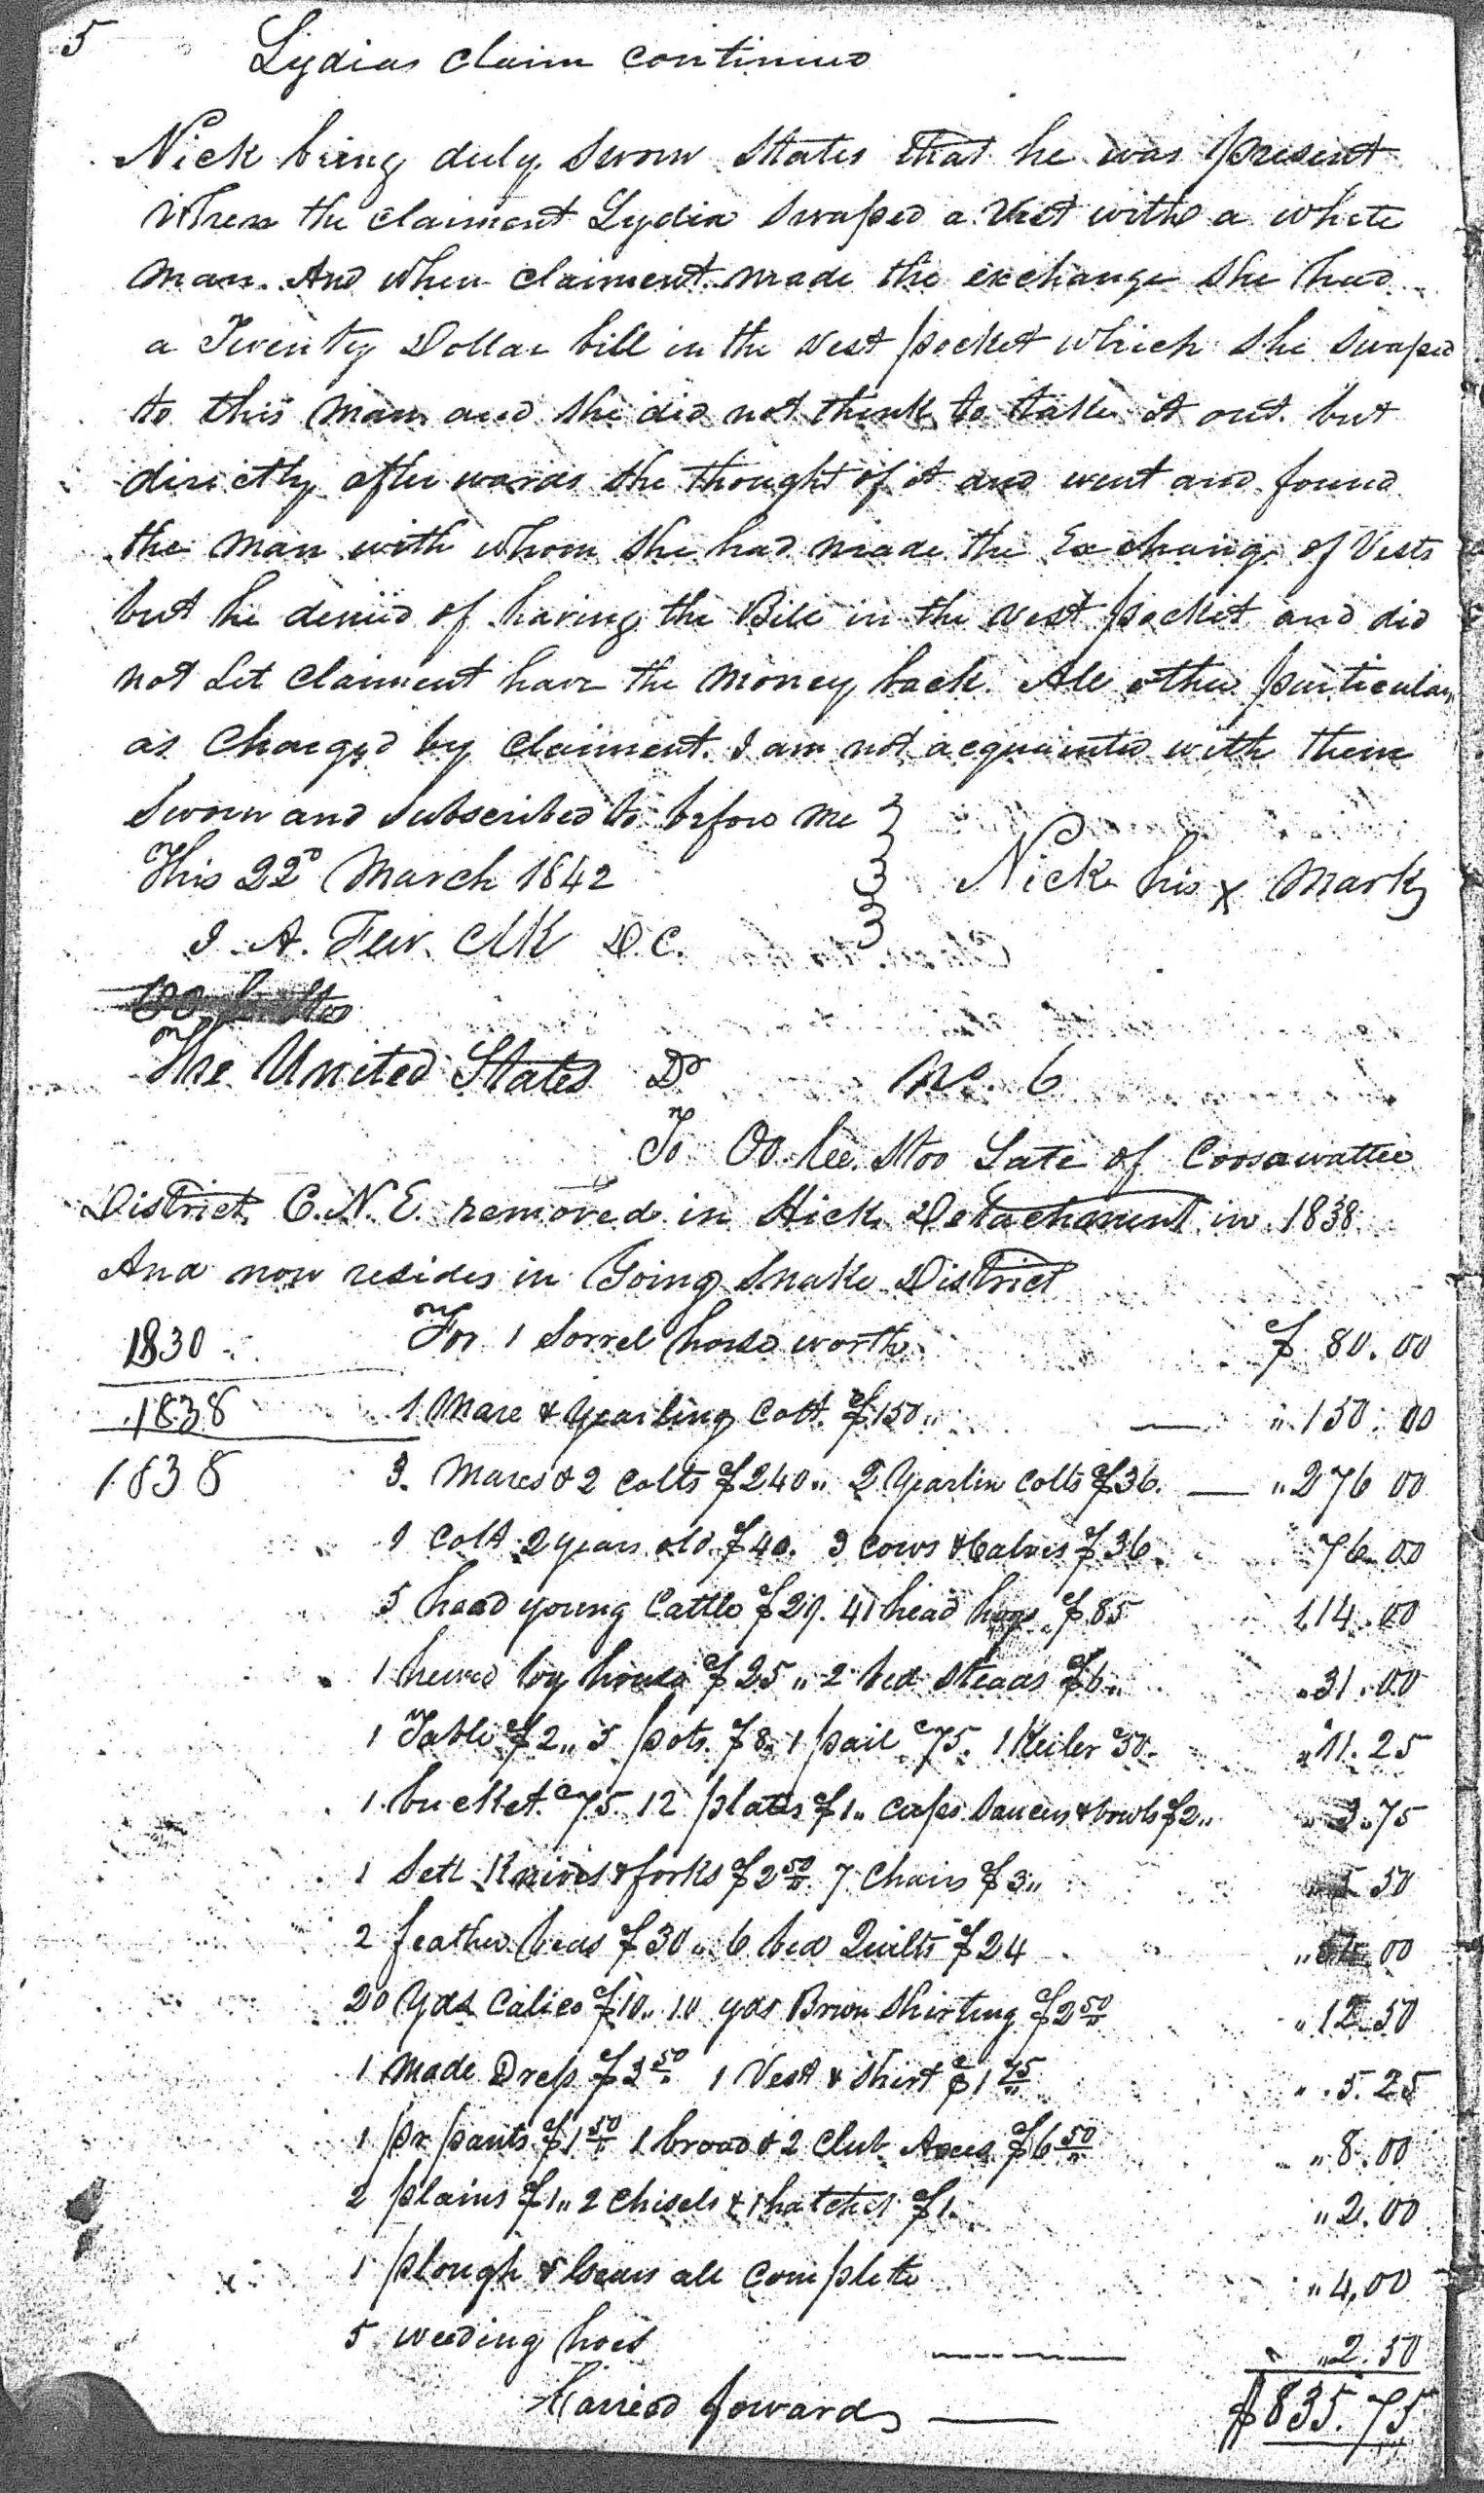 5 Lydias claim continued
Nick being duly sworn states that he was present
When the claiment Lydia swaped a vest with a white
man. And when claiment made the exchange she had
a Twenty Dollar bill in the vest pocket which she swaped
to this man and she did not think to take it out. but
directly after wards she thought of it and went and found
the man with whom she had made the Exchange of Vests
but he denied of having the Bill in the vest pocket and did
not let claiment have the money back. All other particulars
as charged by claiment. I am not acquainted with them
Sworn and subscribed to before me
This 22d March 1842 Nick his x mark
J. A. Clk D.C.
The United States Dr No. 6
To Oo. lee. stoo Late of Coosawattee
District C.N.E. removed in Hicks Detachment in 1838
And now resides in Going Snake District
1830 For 1 Sorrel horse worth $ 80.00
1838 1 Mare & yearling Colt $150 „ — „ 150.00
1838 3 Mares & 2 colts $240 „ 2 yearlin colts $36. — „ 276 00
1 Colt 2 years old $40. 3 cows & Calves $36 76.00
5 head young Cattle $29. 41 head hogs $85 114.00
1 hewed log house $25 „ 2 bed steads $6 „ „ 31.00
1 Table $2 „ 5 pots $8 „ 1 pail c75. 1 Keiler c50. „ 11.25
1 bucket c75 12 plates $1 „ cups saucers & bowls $2 „ „ 3.75
1 Sett Knives & forks $2 50 7 Chairs $3 „ „ 5 50
2 feather beds $30 „ 6 bed Quilts $24 „ 54 00
20 yds Calico $10 „ 10 yds Brown Shirting $2 50 „ 12.50
1 Made Dress $3 50 1 Vest & Shirt $1 75 „ 5.25
1 pr pants $1 50 1 broad & 2 Club Axes $6 50 „ 8.00
2 plains $1 „ 2 chisels & 1 hatchet $1. „ 2.00
1 plough & Gears all complete „ 4,00
5 weeding hoes „ 2.50
Carried foward — $835.75